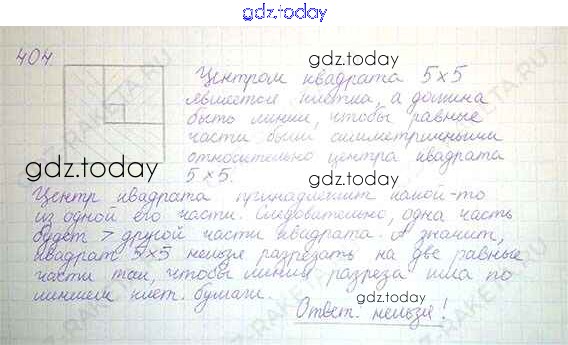 gdz.today
404
gdz.today
Центром квадрата 5×5
является клетка, а должна
быть линия, чтобы равные
части были симметричными
относительно центра квадрата
5×5.
gdz.today
gdz.today
Центр квадрата принадлежит какой-то
из одной его части. Следовательно, одна часть
будет > другой части квадрата. А значит,
квадрат 5×5 нельзя разрезать на две равные
части так, чтобы линия разреза шла по
линиям клет. бумаги.
gdz.today
Ответ: нельзя!